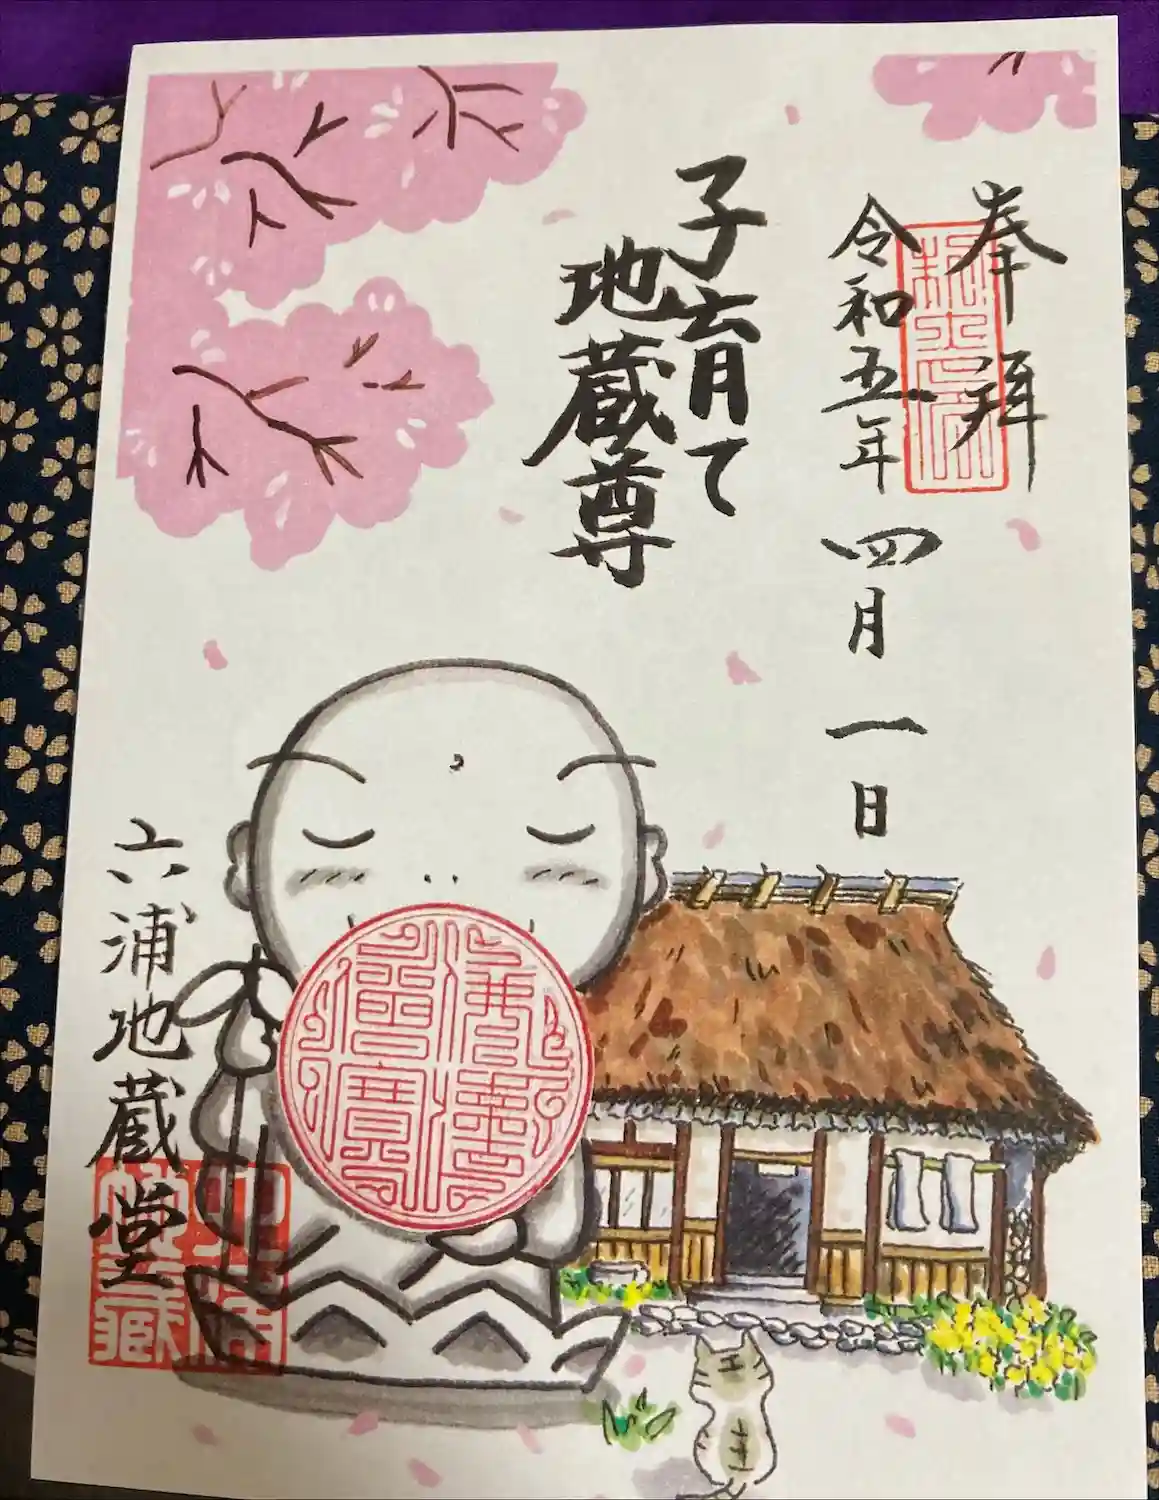 奉拝
令和五年 四月 一日
子育て
地蔵尊
六浦地蔵堂